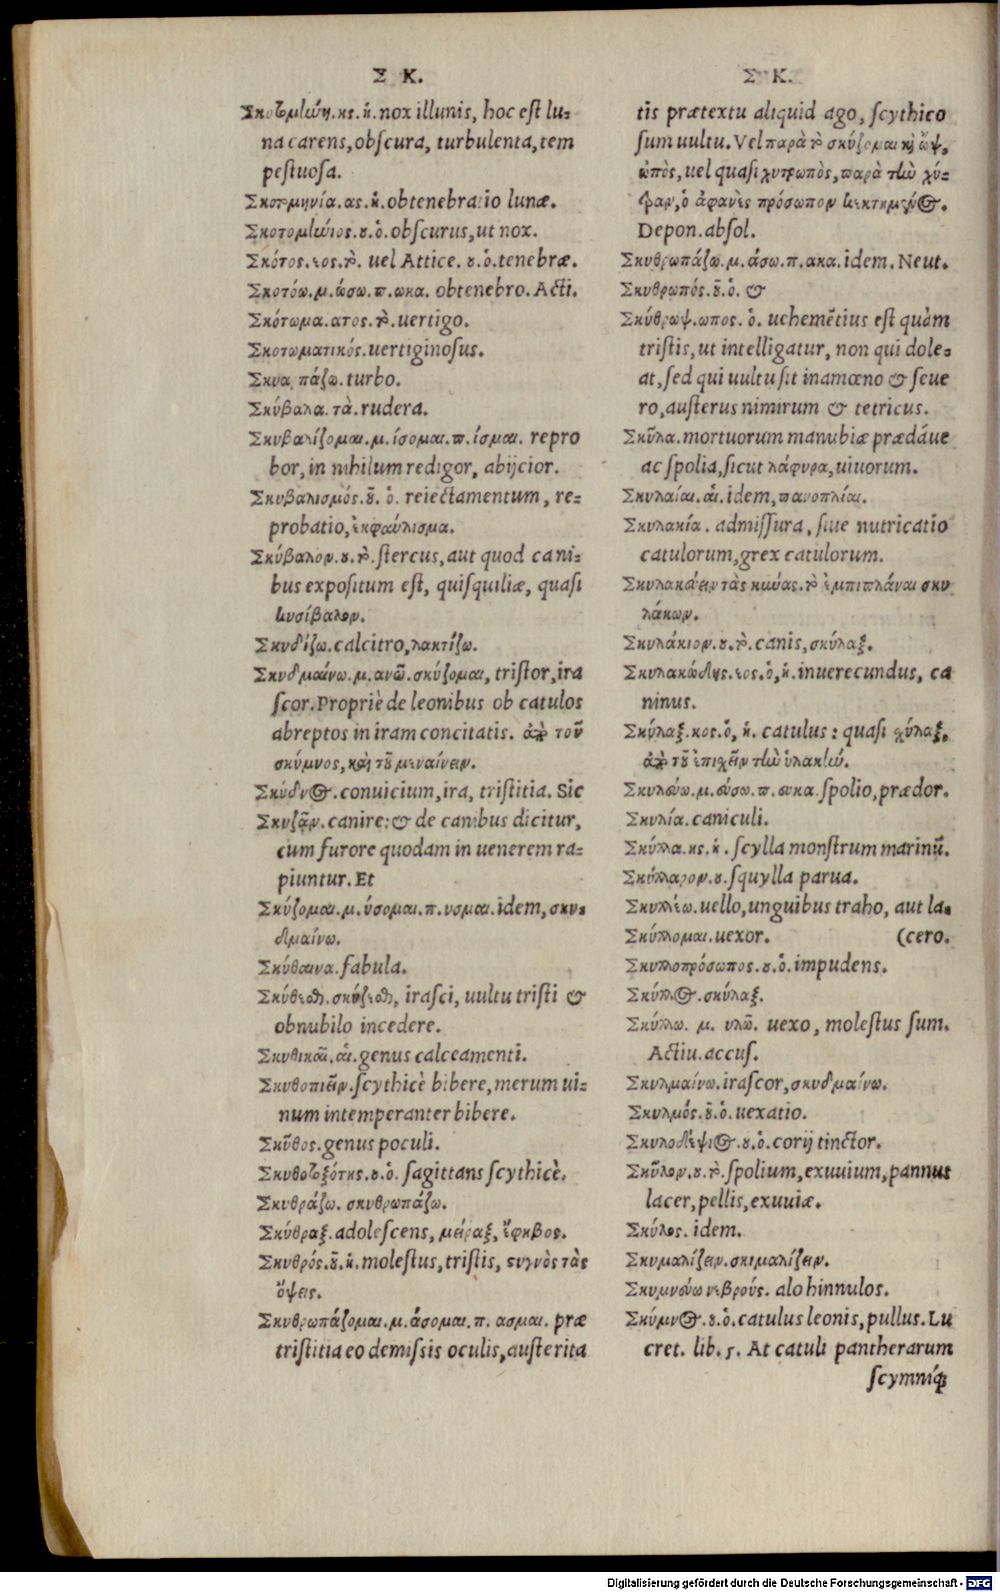 Σ Κ.
Σκοτομήνη.ης.ἡ.nox illunis, hoc est lu-
na carens, obscura, turbulenta, tem
pestuosa.
Σκοτομηνία.ας.ἡ.obtenebratio lunæ.
Σκοτομήνιος.ου.ὁ.obscurus, ut nox.
Σκότος.εος.τὸ. uel Attice. ου.ὁ.tenebræ.
Σκοτόω.μ.ώσω.π.ωκα. obtenebro. Acti.
Σκότωμα.ατος.τὸ.uertigo.
Σκοτωματικός.uertiginosus.
Σκυα πάζω.turbo.
Σκύβαλα.τὰ.rudera.
Σκυβαλίζομαι.μ.ίσομαι.π.ίσμαι. repro
bor, in nihilum redigor, abijcior.
Σκυβαλισμός.οῦ. ὁ. reiectamentum, re-
probatio, ἐκφαύλισμα.
Σκύβαλον.ου.τὸ.stercus, aut quod cani-
bus expositum est, quisquiliæ, quasi
κυσίβαλον.
Σκυδίζω.calcitro, λακτίζω.
Σκυδμαίνω.μ.ανῶ.σκύζομαι, tristor, ira
scor. Propriè de leonibus ob catulos
abreptos in iram concitatis. ἀπὸ τοῦ
σκύμνος, καὶ τοῦ μεναίνειν.
Σκύδνος.conuicium, ira, tristitia. Sic
Σκυζᾷν.canire: & de canibus dicitur,
cum furore quodam in uenerem ra-
piuntur. Et
Σκύζομαι.μ.ύσομαι.π.υσμαι.idem, σκυ-
δμαίνω.
Σκύθαινα.fabula.
Σκύθεσθ.σκύζεσθ, irasci, uultu tristi &
obnubilo incedere.
Σκυθικαῖ.αἱ.genus calceamenti.
Σκυθοπιεῖν.scythicè bibere, merum ui-
num intemperanter bibere.
Σκῦθος.genus poculi.
Σκυθοτοξότης.ου.ὁ. sagittans scythicè.
Σκυθράζω. σκυθρωπάζω.
Σκύθραξ.adolescens, μείραξ, ἔφηβος.
Σκυθρός.οῦ.ἡ.molestus, tristis, στυγνὸς τὰς
ὄψεις.
Σκυθρωπάζομαι.μ.άσομαι.π. ασμαι. præ
tristitia eo demissis oculis, austerita
Σ Κ.
tis prætextu aliquid ago, scythico
sum uultu. Vel παρὰ τὸ σκύζομαι καὶ ὤψ,
ὠπὸς, uel quasi χυτρωπὸς, παρὰ τὴν χύ-
τραν, ὁ ἀφανὲς πρόσωπον κεκτημένος.
Depon.absol.
Σκυθρωπάζω.μ.άσω.π.ακα.idem. Neut.
Σκυθρωπός.οῦ.ὁ. &
Σκύθρωψ.ωπος. ὁ. uehemẽtius est quàm
tristis, ut intelligatur, non qui dole-
at, sed qui uultu sit inamœno & seue
ro, austerus nimirum & tetricus.
Σκῦλα.mortuorum manubiæ prædáue
ac spolia, sicut λάφυρα, uiuorum.
Σκυλαίαι.αἱ.idem, πανοπλίαι.
Σκυλακία. admissura, siue nutricatio
catulorum, grex catulorum.
Σκυλακεύειν τὰς κύνας.τὸ ἐμπιπλάναι σκυ
λάκων.
Σκυλάκιον.ου.τὸ.canis, σκύλαξ.
Σκυλακώδης.εος.ὁ, ἡ.inuerecundus, ca
ninus.
Σκύλαξ.κος.ὁ, ἡ. catulus: quasi χύλαξ,
ἀπὸ τοῦ ἐπιχεῖν τὴν ὑλακὴν.
Σκυλεύω.μ.εύσω.π.ευκα.spolio, prædor.
Σκυλία.caniculi.
Σκύλλα.ης.ἡ. scylla monstrum marinũ.
Σκύλλαρον.ου.squylla parua.
Σκυλλέω.uello, unguibus traho, aut la-
Σκύλλομαι.uexor. (cero.
Σκυλλοπρόσωπος.ου.ὁ.impudens.
Σκύλλος.σκύλαξ.
Σκύλλω. μ. υλῶ. uexo, molestus sum.
Actiu.accus.
Σκυλμαίνω.irascor, σκυδμαίνω.
Σκυλμός.οῦ.ὁ.uexatio.
Σκυλοδέψιος.ου.ὁ.corij tinctor.
Σκῦλον.ου.τὸ.spolium, exuuium, pannus
lacer, pellis, exuuiæ.
Σκύλος. idem.
Σκυμαλίζειν.σκιμαλίζειν.
Σκυμνεύω νεβρούς. alo hinnulos.
Σκύμνος.ου.ὁ.catulus leonis, pullus. Lu
cret. lib. 5. At catuli pantherarum
scymniq;
Digitalisierung gefördert durch die Deutsche Forschungsgemeinschaft - DFG